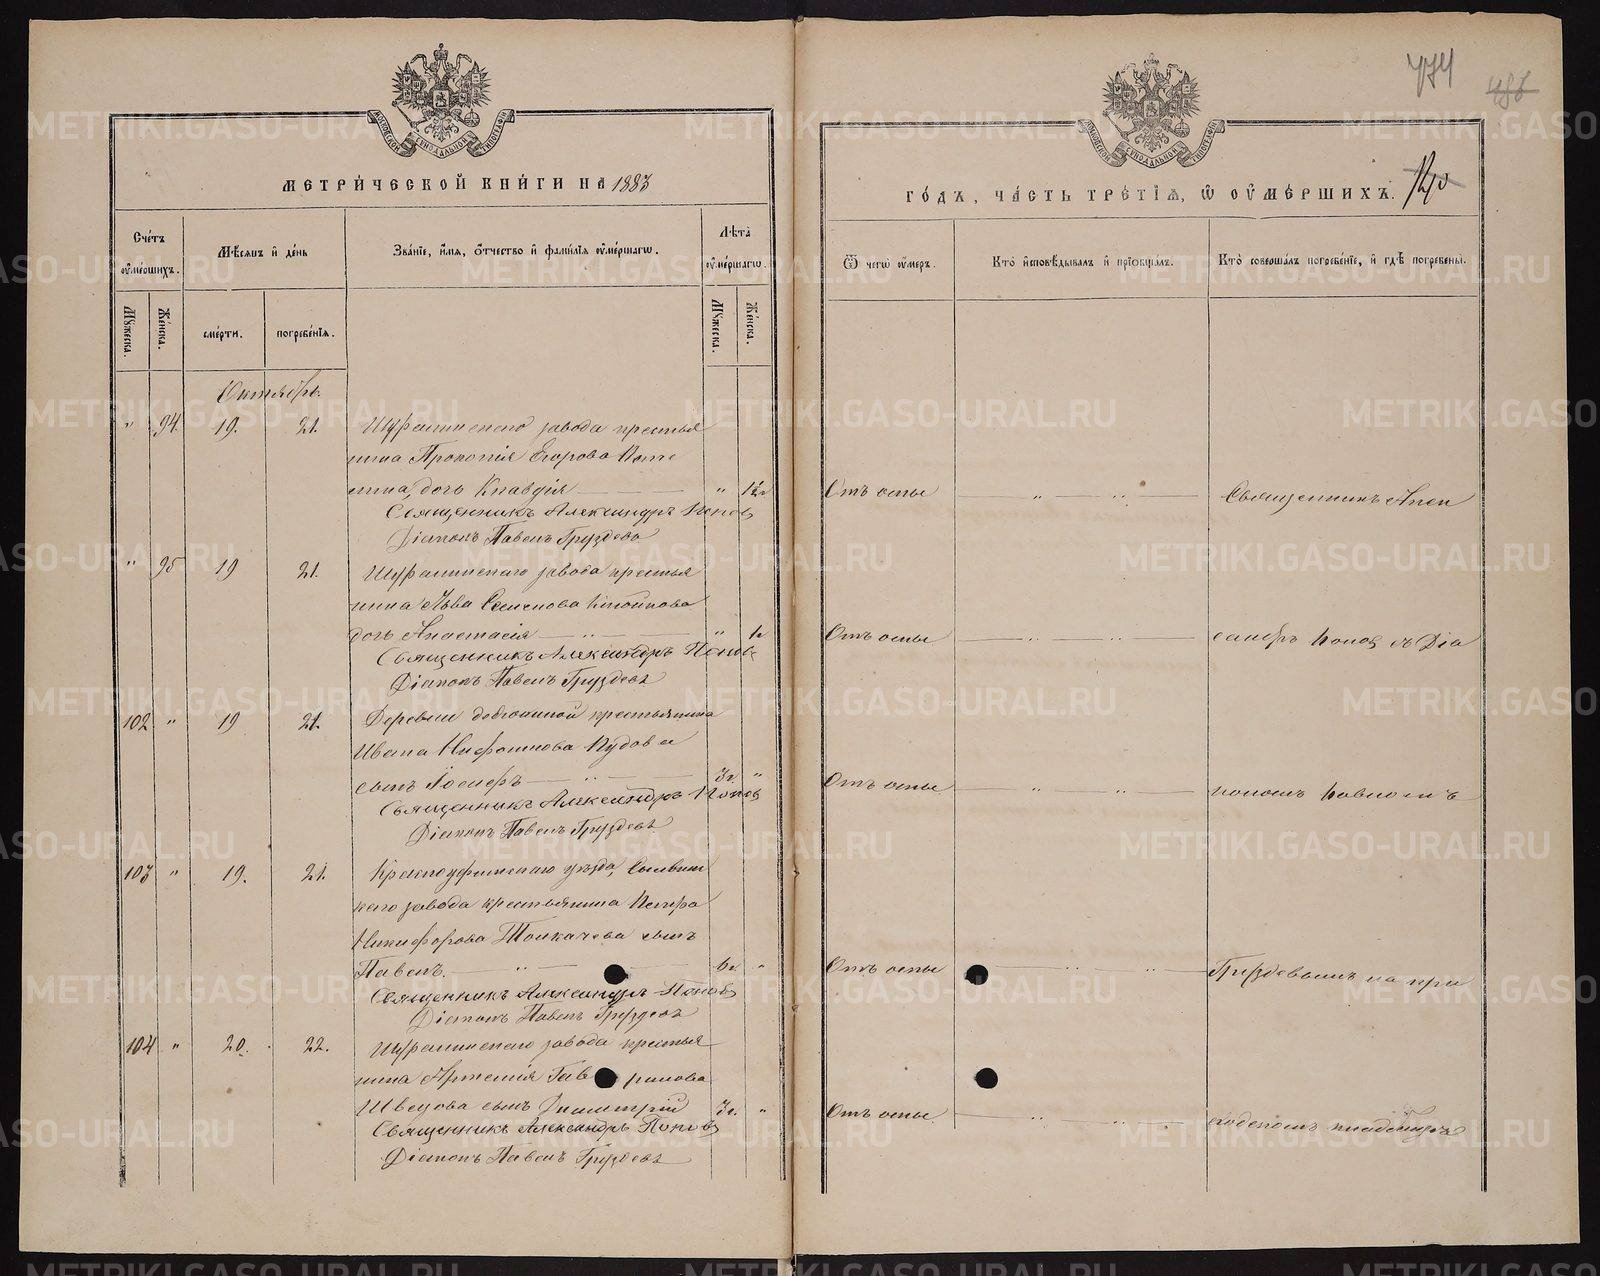 МОСКОВСКОЙ СѴНОДАЛЬНОЙ ТИПОГРАФІИ
МЕТРИ́ЧЕСКОЙ КНИ́ГИ НА 1883
Сче́тъ ᲂу҆ме́ршихъ.
Мѣ́сяцъ и҆ де́нь
Зва́нїе, и҆́мѧ, ѻ҆́тчество и҆ фами́лїѧ ᲂу҆ме́ршагѡ.
Лѣ́та ᲂу҆ме́ршагѡ.
Мꙋ́жеска.
Же́нска.
сме́рти.
погребе́нїѧ.
Мꙋ́жеска.
Же́нска.
Октябрь.
" 94. 19. 21. Шуралинскаго завода крестья
нина Прокопія Егорова
дочь Клавдія " 1½г
Священникъ Александръ Поповъ
Діаконъ Павелъ Груздевъ
" 95 19 21. Шуралинскаго завода крестья
нина Льва Семенова
дочь Анастасія " 1г
Священникъ Александръ Поповъ
Діаконъ Павелъ Груздевъ
102 " 19 21. Деревни крестьянина
Ивана
сынъ Іосифъ 3г. "
Священникъ Александръ Поповъ
Діаконъ Павелъ Груздевъ
103 " 19. 21. Красноуфимскаго уѣзда, Сылвин
скаго завода крестьянина Петра
Никифорова Толкачева сынъ
Павелъ. 6г. "
Священникъ Александръ Поповъ
Діаконъ Павелъ Груздевъ
104 " 20. 22. Шуралинскаго завода крестья
нина Артемія Гаврилова
Швецова сынъ Димитрій 3г. "
Священникъ Александръ Поповъ
Діаконъ Павелъ Груздевъ
774
486
МОСКОВСКОЙ СѴНОДАЛЬНОЙ ТИПОГРАФІИ
ГО́ДЪ, ЧА́СТЬ ТРЕ́ТЇѦ, Ѡ҆ ОУ҆МЕ́РШИХЪ.
Ѿ чегѡ̀ ᲂу҆́меръ.
Кто̀ и҆сповѣ́дывалъ и҆ прїѡбща́лъ.
Кто̀ соверша́лъ погребе́нїе, и҆ гдѣ̀ погребены̀.
Отъ оспы Священникъ Алек
Отъ оспы сандръ Поповъ съ Діа
Отъ оспы кономъ Павломъ
Отъ оспы Груздевымъ на при
Отъ оспы. ходскомъ кладбищѣ
METRIKI.GASO-URAL.RU